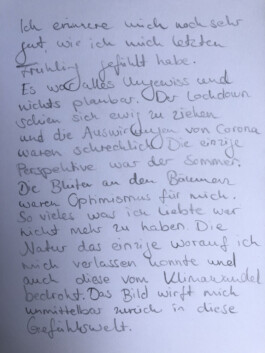 Ich erinnere mich noch sehr
gut, wie ich mich letzten
Frühling gefühlt habe.
Es war alles Ungewiss und
nichts planbar. Der Lockdown
schien sich ewig zu ziehen
und die Auswirkungen von Corona
waren schrecklich. Die einzige
Perspektive war der Sommer.
Die Blüten an den Bäumen
waren Optimismus für mich.
So vieles was ich liebte war
nicht mehr zu haben. Die
Natur das einzige worauf ich
mich verlassen konnte und
auch diese vom Klimawandel
bedroht. Das Bild wirft mich
unmittelbar zurück in diese
Gefühlswelt.